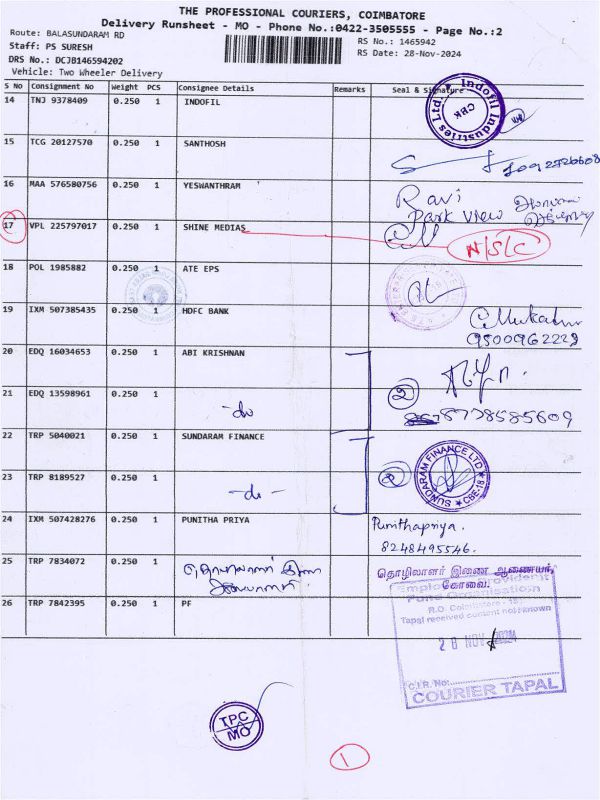 THE PROFESSIONAL COURIERS, COIMBATORE
Delivery Runsheet - MO - Phone No.:0422-3505555 - Page No.:2
Route: BALASUNDARAM RD
Staff: PS SURESH
RS No.: 1465942
DRS No.: DCJB146594202
RS Date: 28-Nov-2024
Vehicle: Two Wheeler Delivery
S No Consignment No Weight PCS Consignee Details Remarks Seal & Signature
14 TNJ 9378409 0.250 1 INDOFIL
Indofil Industries Ltd.
CBK
15 TCG 20127570 0.250 1 SANTHOSH
16 MAA 576580756 0.250 1 YESWANTHRAM
Ravi
Park View
17 VPL 225797017 0.250 1 SHINE MEDIAS
N/S/C
18 POL 1985882 0.250 1 ATE EPS
19 IXM 507385435 0.250 1 HDFC BANK
9500962229
20 EDQ 16034653 0.250 1 ABI KRISHNAN
21 EDQ 13598961 0.250 1
-do
2
8778585609
22 TRP 5040021 0.250 1 SUNDARAM FINANCE
SUNDARAM FINANCE LTD
CBE-18
23 TRP 8189527 0.250 1
-do-
2
24 IXM 507428276 0.250 1 PUNITHA PRIYA
Punithapriya.
8248495546.
25 TRP 7834072 0.250 1
தொழிலாளர் இணை ஆணையர்,
கோவை.
26 TRP 7842395 0.250 1 PF
Employees Provident
Fund Organisation
R.O. Coimbatore - 18
Tapal received content not known
28 NOV 2024
C.I.R. No:
COURIER TAPAL
TPC
MO
1